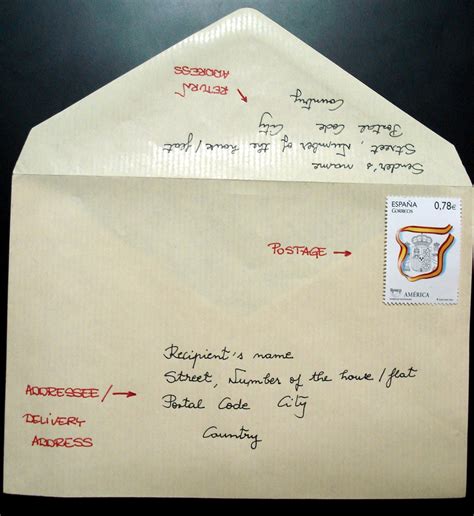 RETURN
ADDRESS
Sender's name
Street, Number of the house/flat
Postal Code City
Country
ESPAÑA 0,78€
CORREOS
AMÉRICA
POSTAGE
Recipient's name
Street, Number of the house/flat
Postal Code City
Country
ADDRESSEE/
DELIVERY
ADDRESS